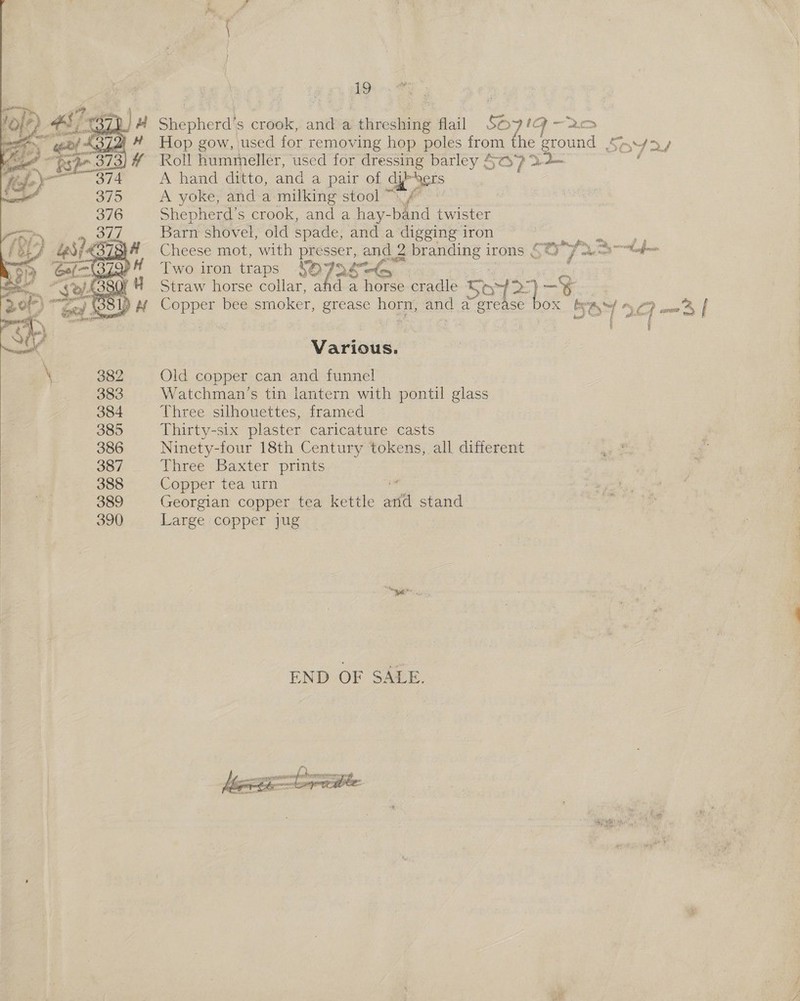 19
371 H Shepherd's crook, and a threshing flail 50719-20
372 H Hop gow, used for removing hop poles from the ground 50721
373 H Roll hummeller, used for dressing barley 50722
374 A hand ditto, and a pair of dibbers
375 A yoke, and a milking stool
376 Shepherd's crook, and a hay-band twister
377 Barn shovel, old spade, and a digging iron
378 H Cheese mot, with presser, and 2 branding irons 50723-4
379 H Two iron traps 50725-6
380 H Straw horse collar, and a horse cradle 50727-8
381 H Copper bee smoker, grease horn, and a grease box 50729-31
Various.
382 Old copper can and funnel
383 Watchman's tin lantern with pontil glass
384 Three silhouettes, framed
385 Thirty-six plaster caricature casts
386 Ninety-four 18th Century tokens, all different
387 Three Baxter prints
388 Copper tea urn
389 Georgian copper tea kettle and stand
390 Large copper jug
END OF SALE.